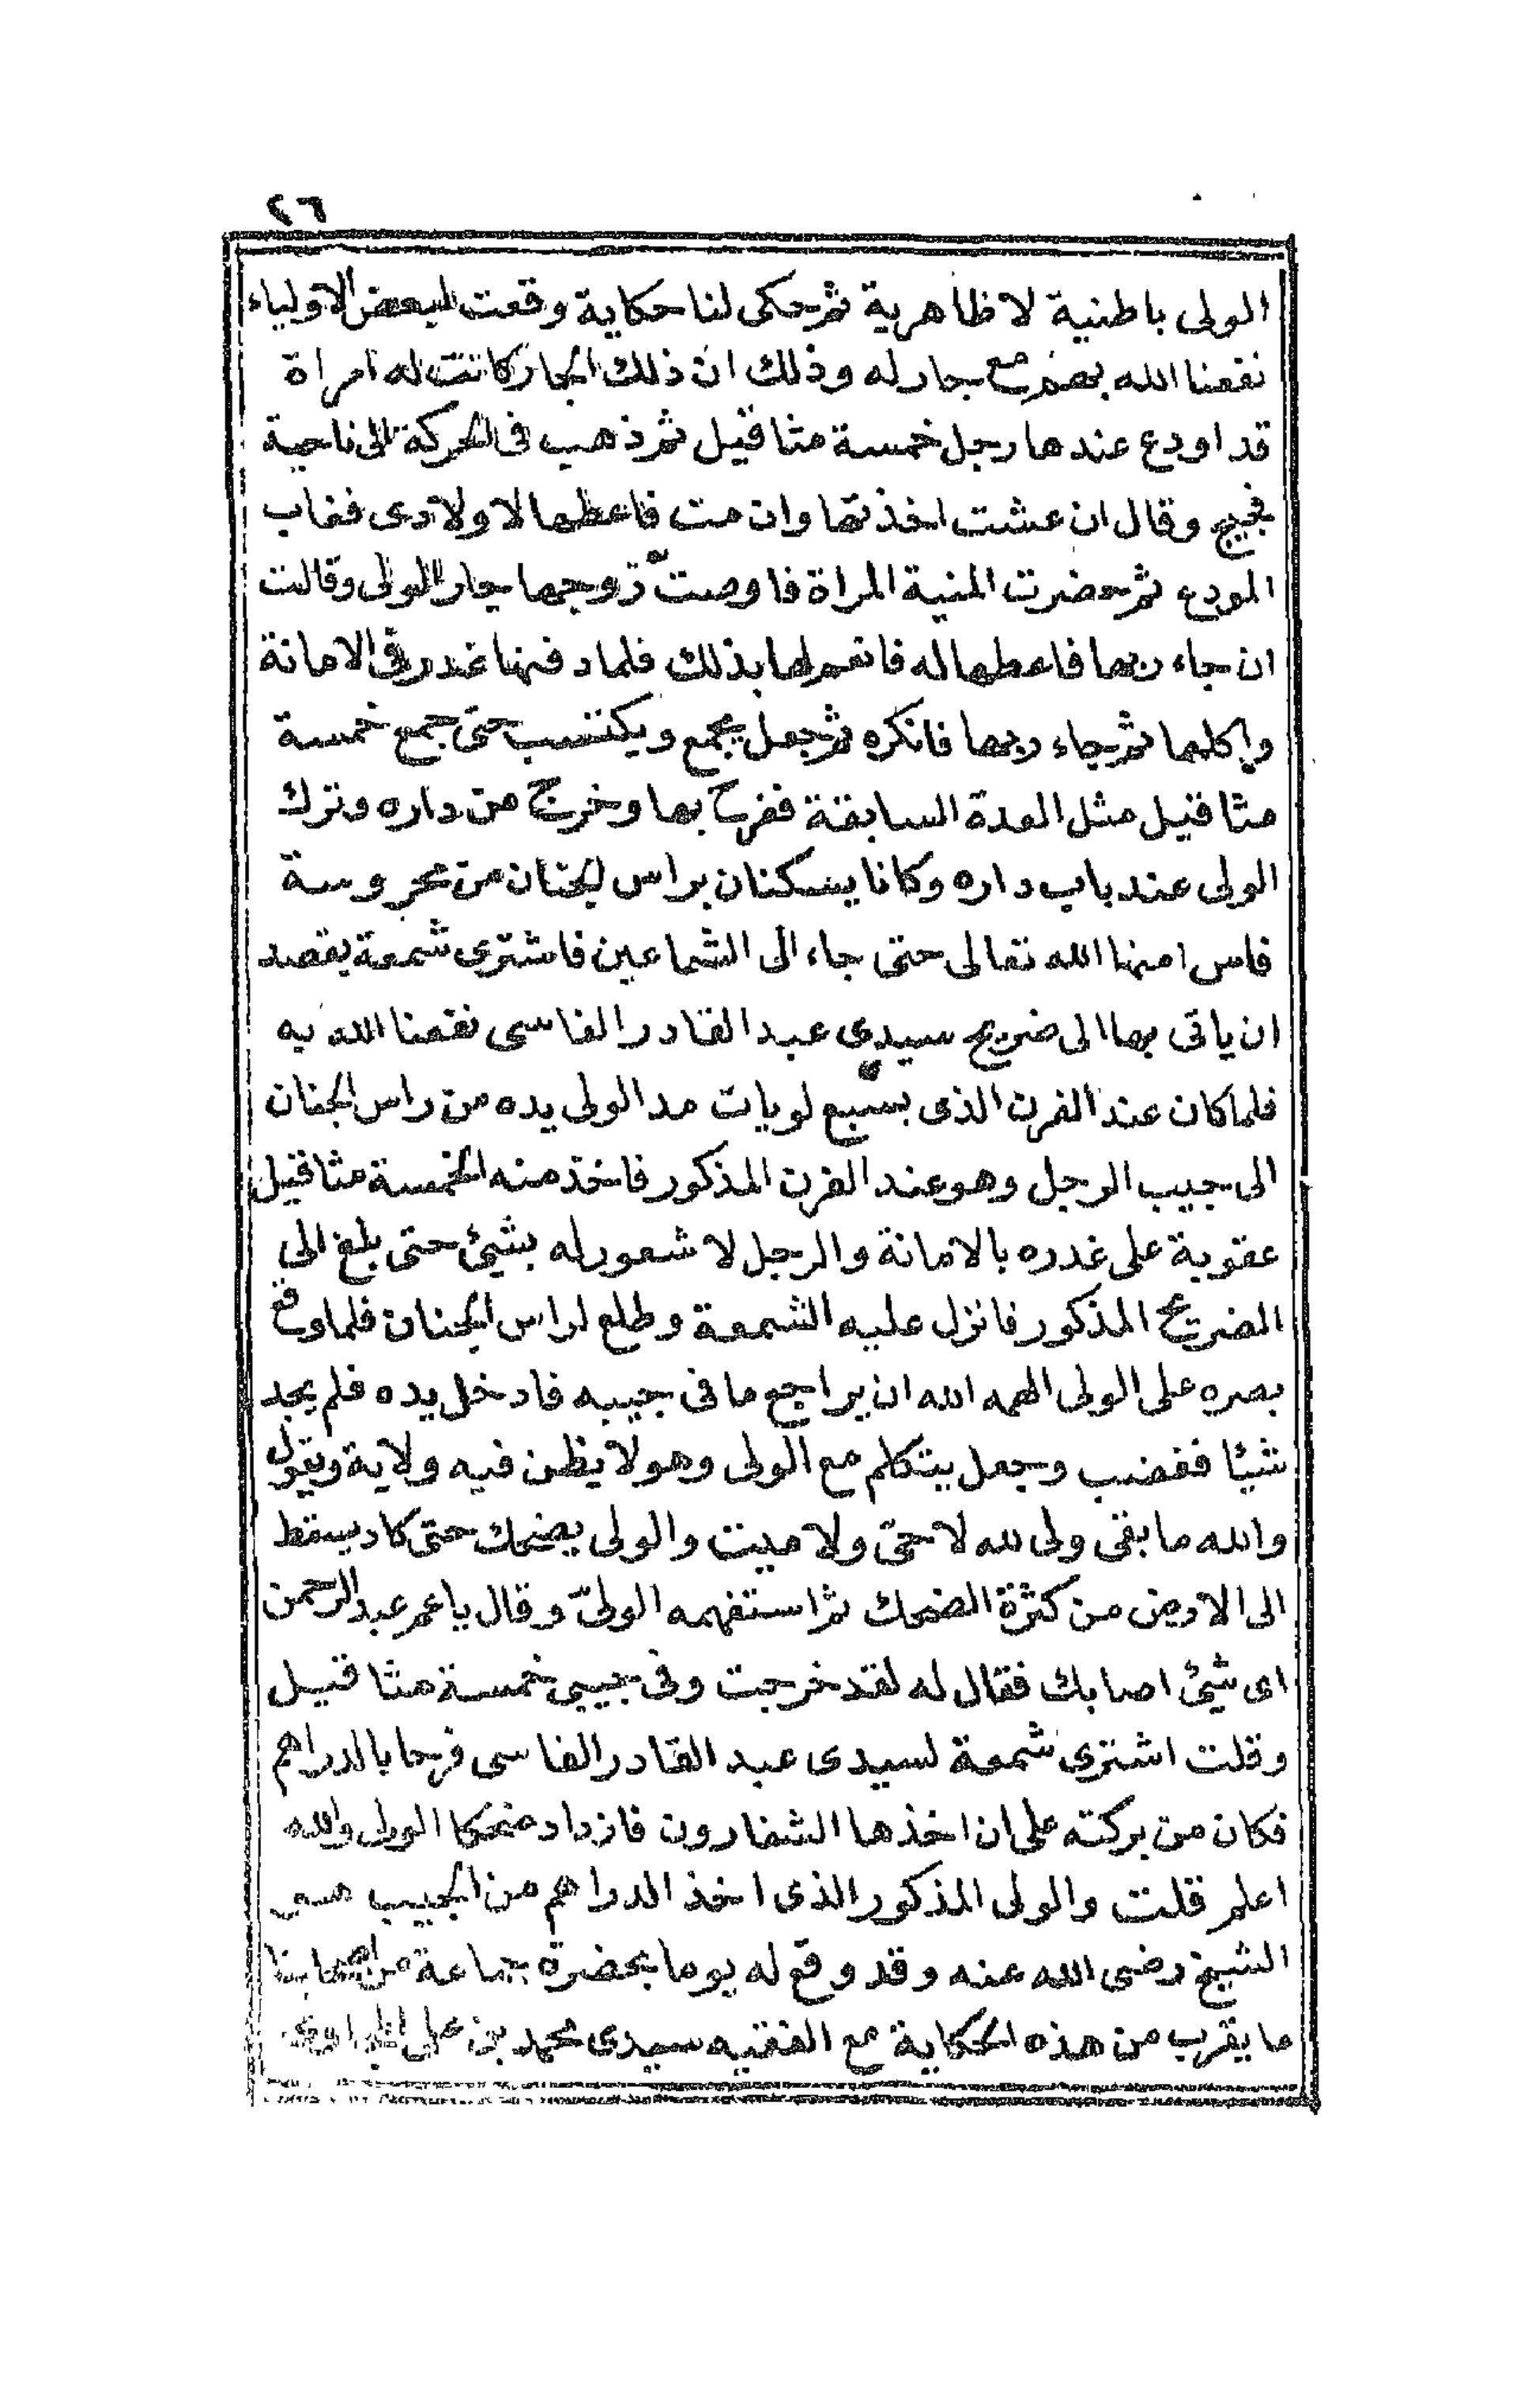 ٢٦
الولى باطنية لا ظاهرية ثم حكى لنا حكاية وقعت لبعض الاولياء
نفعنا الله بهم مع جار له وذلك ان ذلك الجار كانت له امراة
قد اودع عندها رجل خمسة مثاقيل ثم ذهب فى الحركة الى ناحية
فجيج وقال ان عشت اخذتها وان مت فاعطها لاولادى فغاب
المودع ثم حضرت المنية المراة فاوصت زوجها جار الولى وقالت
ان جاء ربها فاعطها له فانعم لها بذلك فلما دفنها غدر فى الامانة
واكلها ثم جاء ربها فانكره ثم جعل يجمع ويكتسب حتى جمع خمسة
مثاقيل مثل العدة السابقة ففرح بها وخرج من داره وترك
الولى عند باب داره وكانا يسكنان براس الجنان من محروسة
فاس امنها الله تعالى حتى جاء الى الشماعين فاشترى شمعة بقصد
ان ياتى بها الى ضريح سيدى عبد القادر الفاسى نفعنا الله به
فلما كان عند الفرن الذى بسبع لويات مد الولى يده من راس الجنان
الى جيب الرجل وهو عند الفرن المذكور فاخذ منه الخمسة مثاقيل
عقوبة على غدره بالامانة والرجل لا شعور له بشيئ حتى بلغ الى
الضريح المذكور فانزل عليه الشمعة وطلع لراس الجنان فلما وقع
بصره على الولى الهمه الله ان يراجع ما فى جيبه فادخل يده فلم يجد
شيئا فغضب وجعل يتكلم مع الولى وهو لا يظن فيه ولاية ويقول
والله ما بقى ولى لله لا حىّ ولا ميت والولى يضحك حتى كاد يسقط
الى الارض من كثرة الضحك ثم استفهمه الولىّ وقال يا عمر عبد الرحمن
اى شيئ اصابك فقال له لقد خرجت وفى جيبى خمسة مثاقيل
وقلت اشترى شمعة لسيدى عبد القادر الفاسى فرحا بالدراهم
فكان من بركته على ان اخذها الشفارون فازداد ضحكا الولى والله
اعلم قلت والولى المذكور الذى اخذ الدراهم من الجيب هو
الشيخ رضى الله عنه وقد وقع له يوما بحضرة جماعة من اصحابنا
ما يقرب من هذه الحكاية مع الفقيه سيدى محمد بن على المجاوى